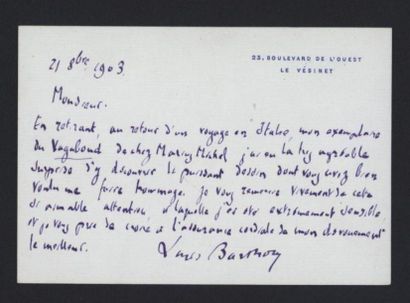 23, BOULEVARD DE L'OUEST
LE VÉSINET
21 8bre 1903
Monsieur.
En retirant, au retour d'un voyage en Italie, mon exemplaire
du Vagabond de chez Marius Michel j'ai eu la très agréable
surprise d'y découvrir le puissant dessin dont vous avez bien
voulu me faire hommage. Je vous remercie vivement de cette
si aimable attention, à laquelle j'ai été extrêmement sensible
et je vous prie de croire à l'assurance cordiale de mon dévouement
le meilleur.
Louis Barthou